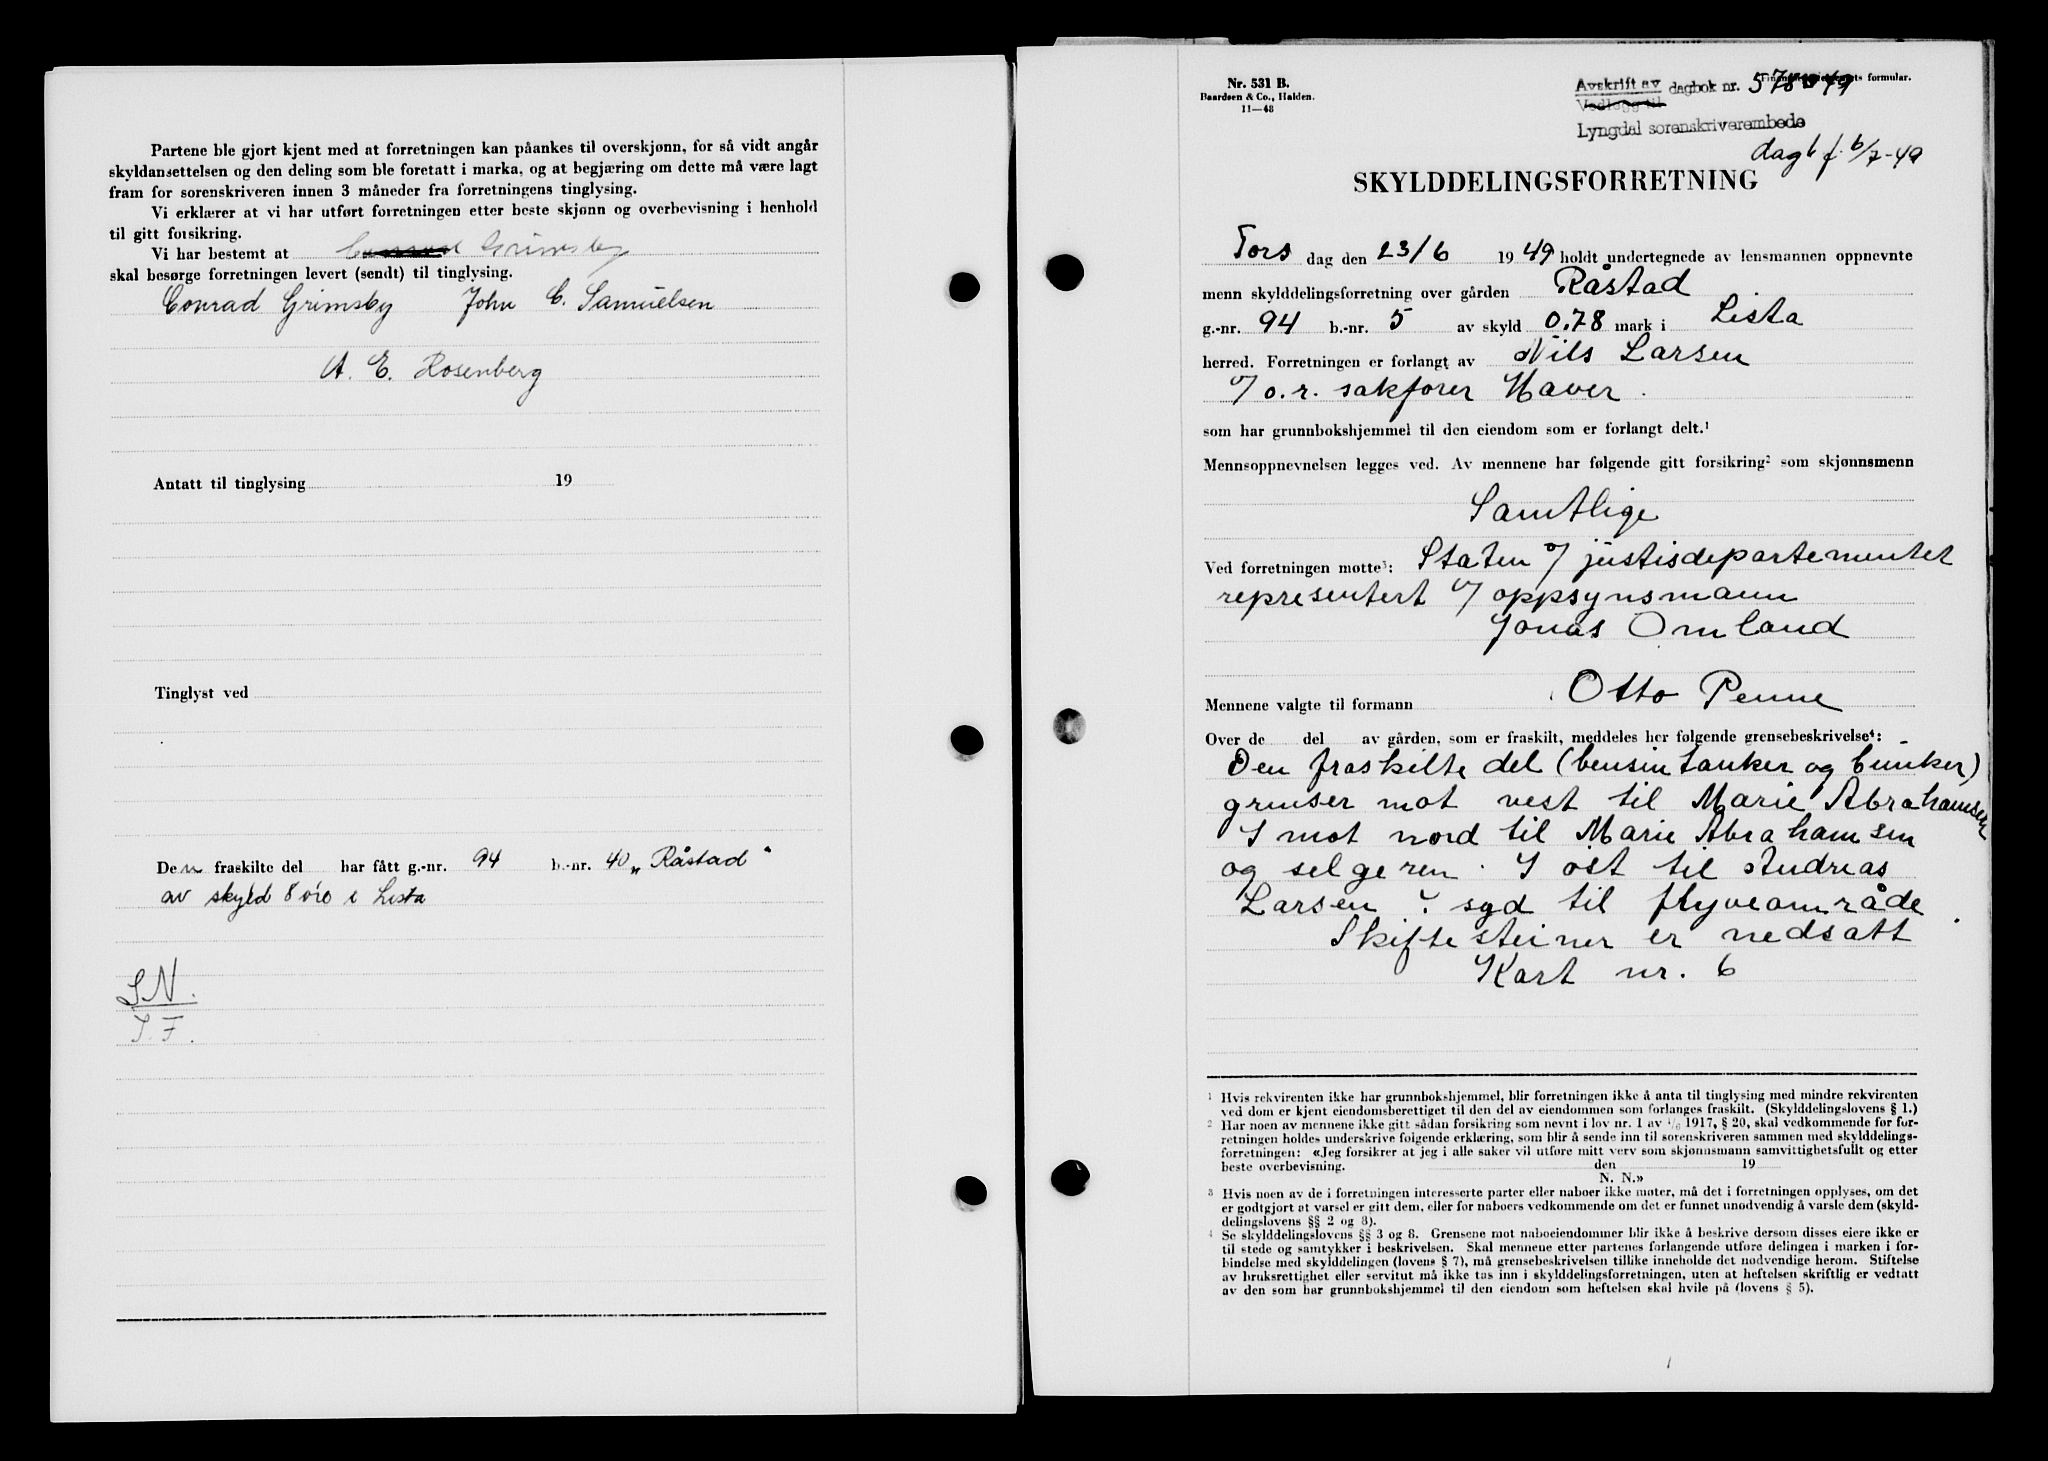 Partene ble gjort kjent med at forretningen kan påankes til overskjønn, for så vidt angår
skyldansettelsen og den deling som ble foretatt i marka, og at begjæring om dette må være lagt
fram for sorenskriveren innen 3 måneder fra forretningens tinglysing.
Vi erklærer at vi har utført forretningen etter beste skjønn og overbevisning i henhold
til gitt forsikring.
Vi har bestemt at Conrad Grimsby
skal besørge forretningen levert (sendt) til tinglysing.
Conrad Grimsby John C. Samuelsen
A. E. Rosenberg
Antatt til tinglysing 19
Tinglyst ved
Den fraskilte del har fått g.-nr. 94 b.-nr. 40 „Råstad"
av skyld 8 øre i Lista
S N.
T. F.
Nr. 531 B.
Baardsen & Co., Halden.
11—48
Avskrift av dagbok nr. 578 49
Vedlegg til
formular.
Lyngdal sorenskriverembede
dagb f. 6/7-49
SKYLDDELINGSFORRETNING
Tors dag den 23/6 1949 holdt undertegnede av lensmannen oppnevnte
menn skylddelingsforretning over gården Råstad
g.-nr. 94 b.-nr. 5 av skyld 0.78 mark i Lista
herred. Forretningen er forlangt av Nils Larsen
v/ o.r. sakfører Haver.
som har grunnbokshjemmel til den eiendom som er forlangt delt.¹
Mennsoppnevnelsen legges ved. Av mennene har følgende gitt forsikring² som skjønnsmenn
Samtlige
Ved forretningen møtte³: Staten v/ justisdepartementet
representert v/ oppsynsmann
Jonas Omland
Mennene valgte til formann Otto Penne
Over de del av gården, som er fraskilt, meddeles her følgende grensebeskrivelse⁴:
Den fraskilte del (bensintanker og bunker)
grenser mot vest til Marie Abrahamsen
I mot nord til Marie Abrahamsen
og selgeren. I øst til Andreas
Larsen i syd til flyveområde.
Skiftesteiner er nedsatt
Kart nr. 6
1 Hvis rekvirenten ikke har grunnbokshjemmel, blir forretningen ikke å anta til tinglysing med mindre rekvirenten
ved dom er kjent eiendomsberettiget til den del av eiendommen som forlanges fraskilt. (Skylddelingslovens § 1.)
2 Har noen av mennene ikke gitt sådan forsikring som nevnt i lov nr. 1 av 1/6 1917, § 20, skal vedkommende før for-
retningen holdes underskrive følgende erklæring, som blir å sende inn til sorenskriveren sammen med skylddelings-
forretningen: «Jeg forsikrer at jeg i alle saker vil utføre mitt verv som skjønnsmann samvittighetsfullt og etter
beste overbevisning. den 19
N. N.»
3 Hvis noen av de i forretningen interesserte parter eller naboer ikke møter, må det i forretningen opplyses, om det
er godtgjort at varsel er gitt dem, eller for naboers vedkommende om det er funnet unødvendig å varsle dem (skyld-
delingslovens §§ 2 og 8).
4 Se skylddelingslovens §§ 3 og 8. Grensene mot naboeiendommer blir ikke å beskrive dersom disses eiere ikke er
til stede og samtykker i beskrivelsen. Skal mennene etter partenes forlangende utføre delingen i marken i for-
bindelse med skylddelingen (lovens § 7), må grensebeskrivelsen tillike inneholde det nødvendige herom. Stiftelse
av bruksrettighet eller servitut må ikke tas inn i skylddelingsforretningen, uten at heftelsen skriftlig er vedtatt
av den som har grunnbokshjemmel til den eiendom som heftelsen skal hvile på (lovens § 5).